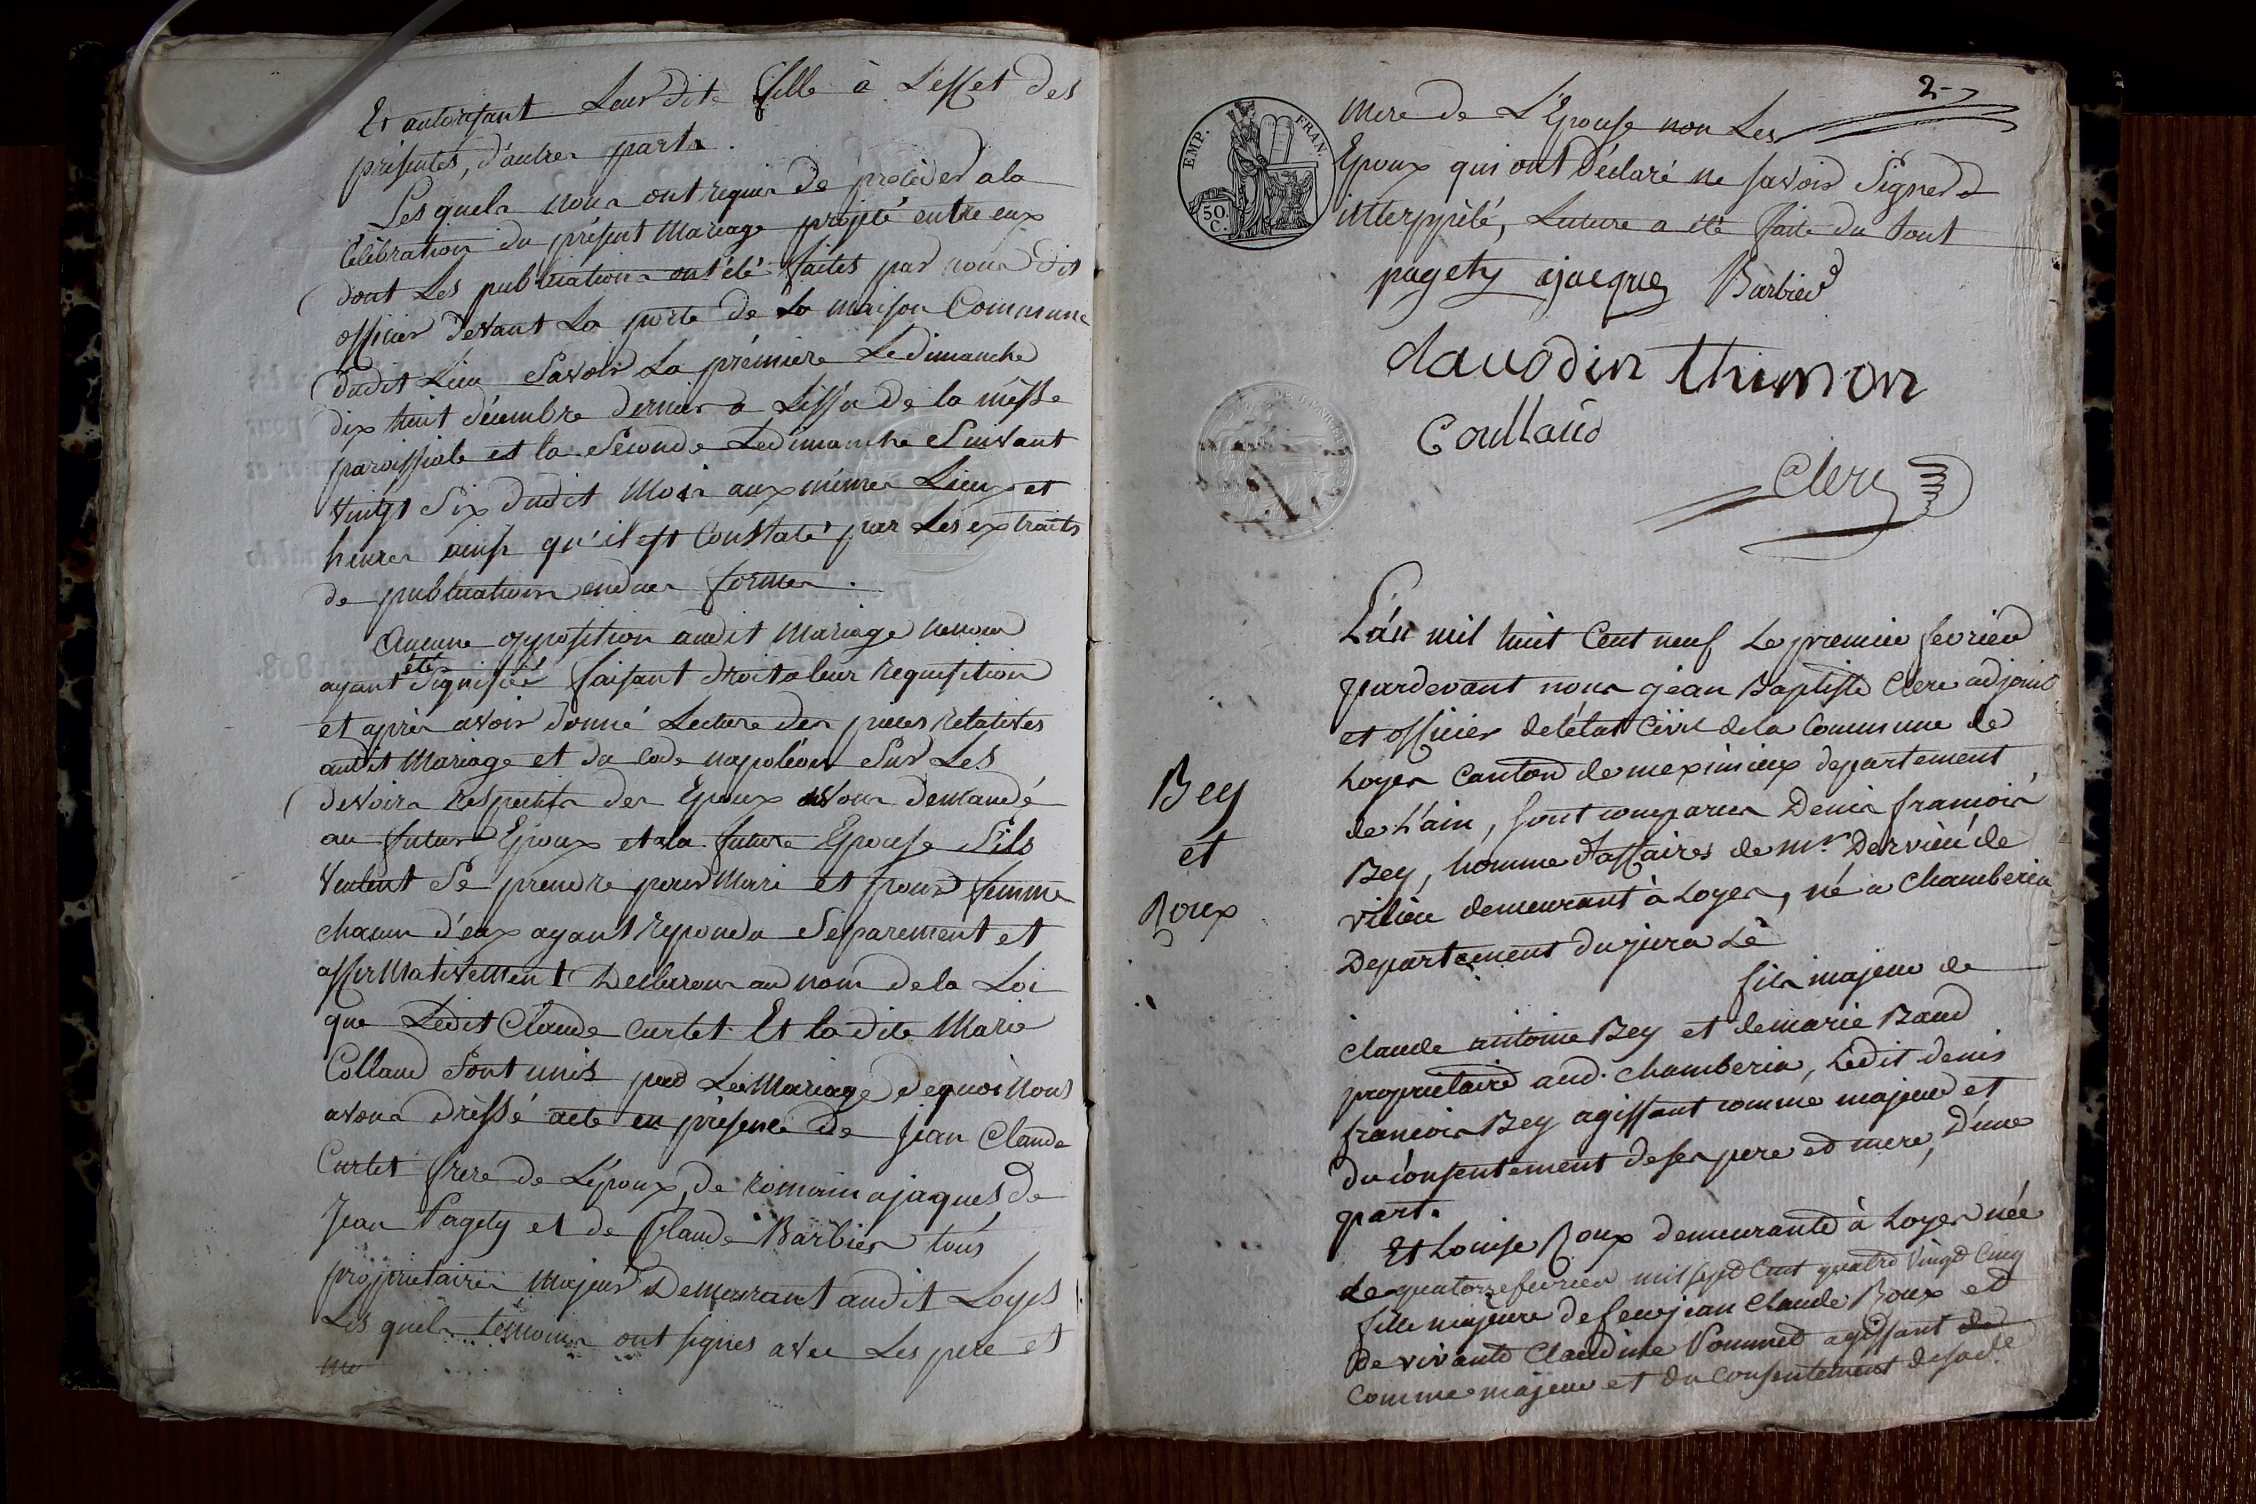 Et autorisant Leur dite fille à L'effet des
présentes, d'autres parts.
Les quels nous ont requis de procéder a la
Célébration du présent Mariage projeté entre eux
dont Les publications ont été faites par nous dit
officier devant La porte de La maison Commune
dudit Lieu Savoir La prémiere Le dimanche
dix huit décembre dernier a L'issu de la messe
paroissiale et la Seconde Le dimanche Suivant
vingt Six dudit Mois aux mêmes Lieux et
heures ainsi qu'il est Constaté par Les extraits
de publication en dues formes.
Aucune opposition audit Mariage ne nous
ayant été Signifiée faisant droit a leur requisition
et après avoir donné Lecture des pièces relatives
audit Mariage et du Code napoléon Sur Les
devoirs respectifs des Epoux avons demandé
au futur Epoux et a la future Epouse S'ils
veulent Se prendre pour Mari et pour femme
chacun d'eux ayant repondu Séparement et
affirmativement Declarons au nom de la Loi
que Ledit Claude Curlet Et la dite Marie
Colland Sont unis par Le Mariage de quoi Nous
avons dréssé acte en présence de Jean Claude
Curlet frere de L'époux, de romain ajaques de
Jean Pagety et de Claude Barbier tous
propriétaires Majeurs Demeurant audit Loyes
Les quels témoins ont signés avec Les pere et
me
2
EMP. FRAN.
50. C.
Mere de L'Epouse non Les
Epoux qui ont Déclaré ne Savoir Signer d
interppélé, Lecture a été faite du tout
pagety ajacques Barbier
claudin thimon
Coulland
Clerc
L'an mil huit Cent neuf Le premier fevrier
pardevant nous jean Baptiste Clerc adjoint
et officier de l'état Civil de la Commune de
Loyes Canton de meximieux departement
de L'ain, sont comparus Denis francois
Bey, homme d'affaires de Mr. Dervieu de
vilieu demeurant à Loyes, né a Chamberia
Departement du jura Le
fils majeur de
Claude antoine Bey et de marie Baud
proprietaire aud. Chamberia, Ledit denis
francois Bey agissant comme majeur et
du consentement de ses pere et mere, D'une
part.
Bey
et
Roux
Et Louise Roux demeurante à Loyes née
Le quatorze fevrier mil sept Cent quatre Vingt Cinq
fille majeure de feu jean Claude Roux et
de vivante Claudine Pommet agissant de
Comme majeur et du consentement de sade